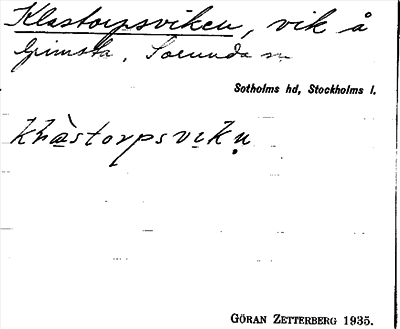 Klastorpsviken, vik å
Grimsta, Sorunda sn
Sotholms hd, Stockholms l.
khàstorpsvikn̥
GÖRAN ZETTERBERG 1935.